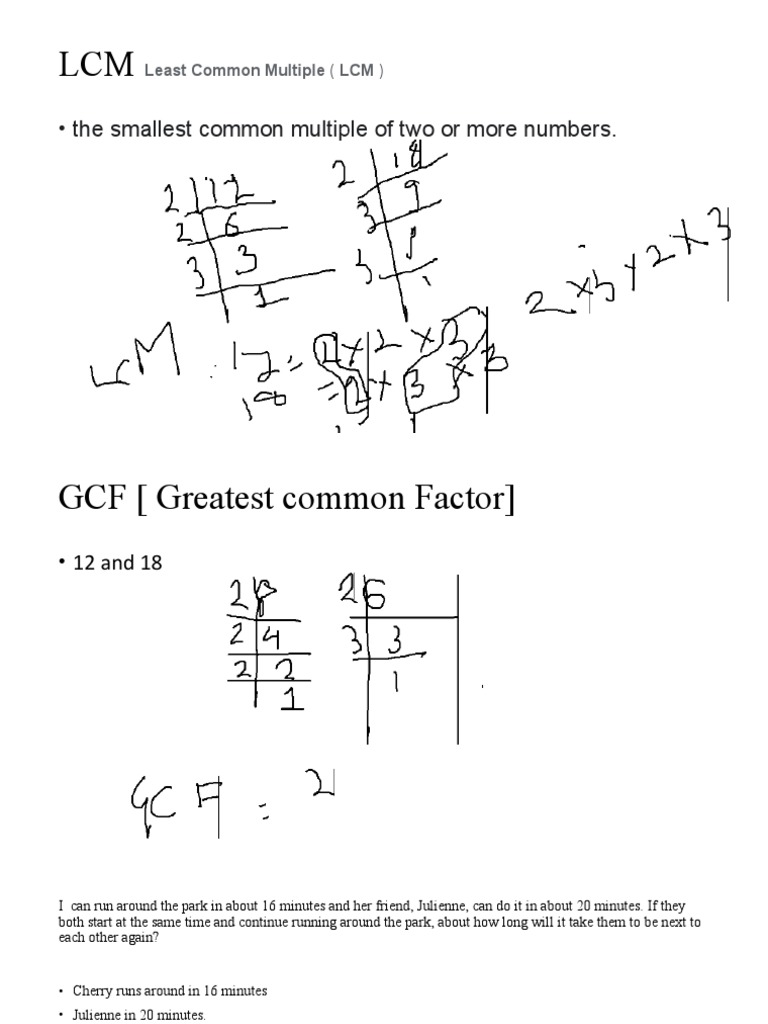 LCM Least Common Multiple ( LCM )
• the smallest common multiple of two or more numbers.
2 12
2 6
3 3
1
2 18
3 9
3
2 × 3 × 2 × 3
LCM : 12 = 2 × 2 × 3
18 = 2 × 3 × 3
GCF [ Greatest common Factor]
• 12 and 18
2 8
2 4
2 2
1
2 6
3 3
1
GCF = 2
I can run around the park in about 16 minutes and her friend, Julienne, can do it in about 20 minutes. If they
both start at the same time and continue running around the park, about how long will it take them to be next to
each other again?
• Cherry runs around in 16 minutes
• Julienne in 20 minutes.